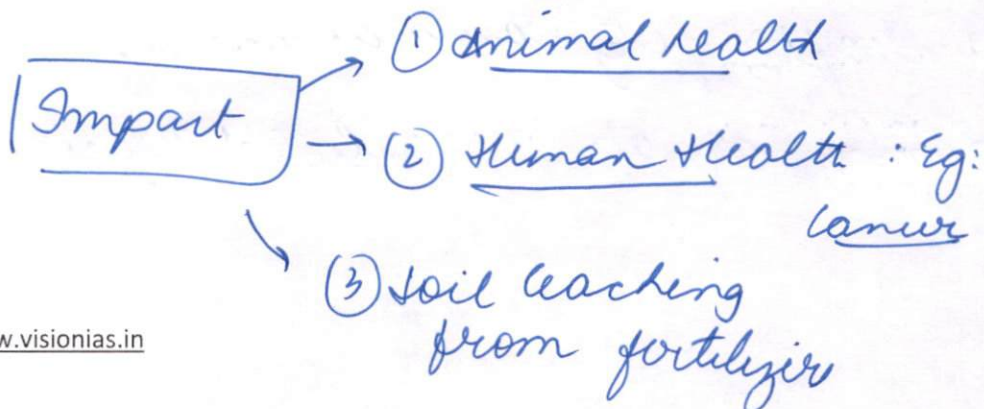 ① Animal health
Impact
② Human Health : Eg:
Cancer
③ Soil leaching
from fertilizer
w.visionias.in